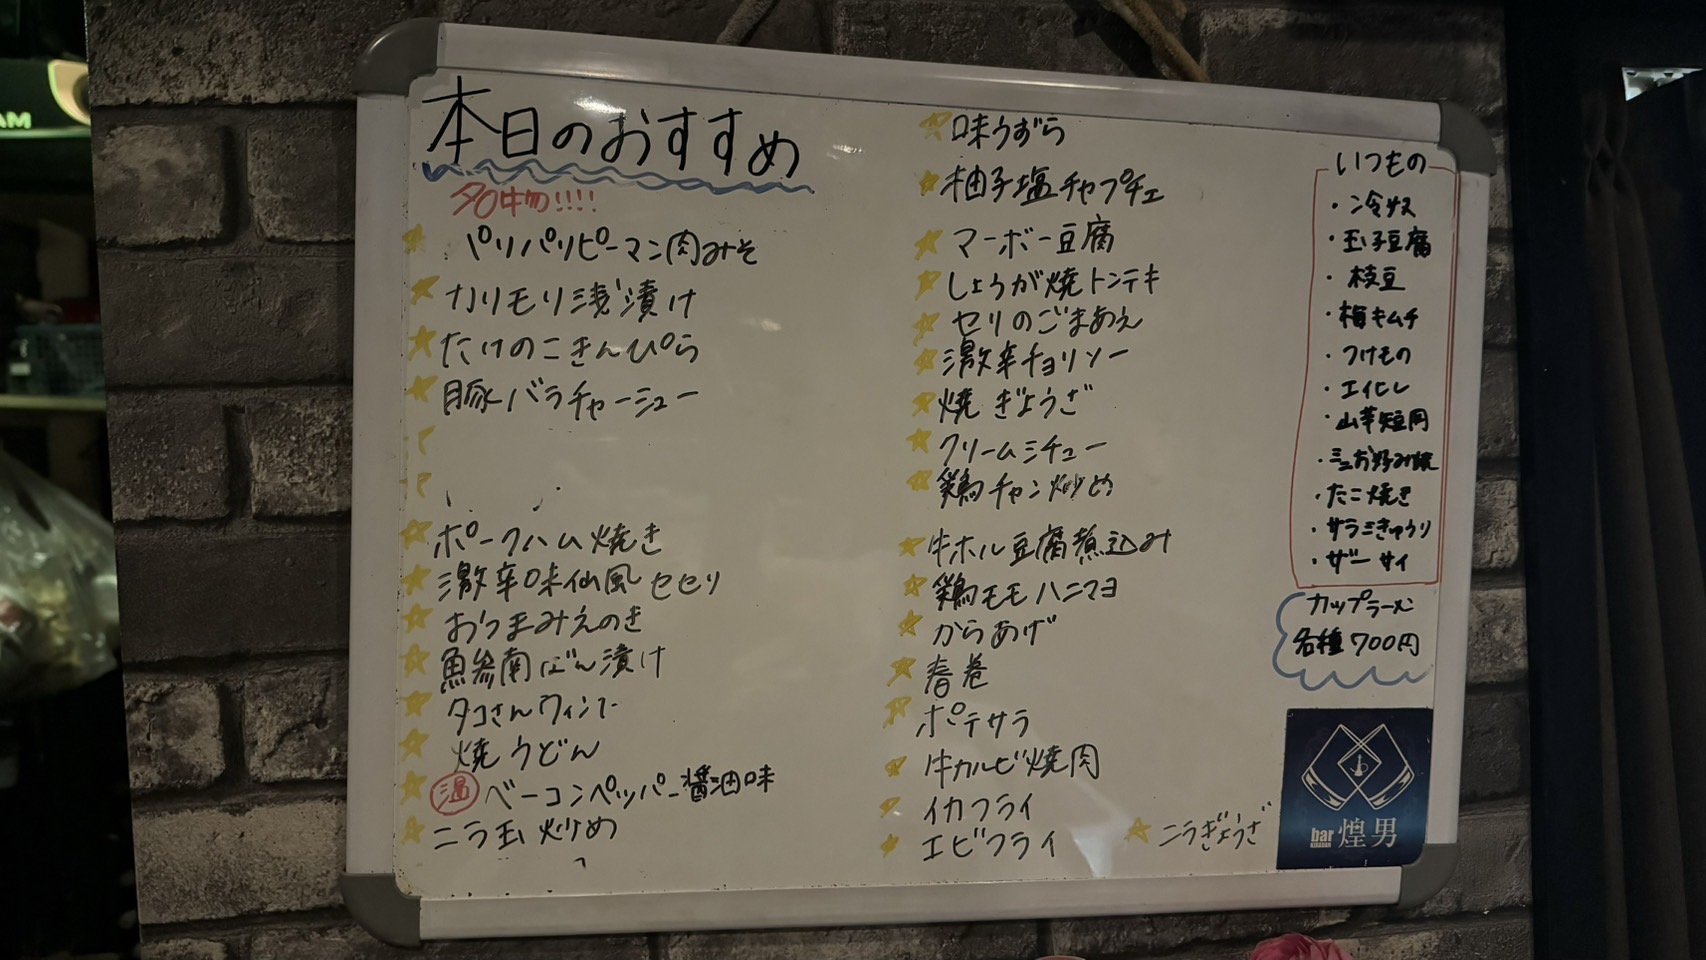 本日のおすすめ
パリパリピーマン肉みそ
カリモリ浅漬け
たけのこきんぴら
豚バラチャーシュー
ポークハム焼き
激辛味仙風セセリ
おつまみえのき
魚参南ばん漬け
タコさんウィンナー
焼うどん
温 ベーコンペッパー醤油味
ニラ玉炒め
味うずら
柚子塩チャプチェ
マーボー豆腐
しょうが焼トンテキ
セリのごまあえ
激辛チョリソー
焼ぎょうざ
クリームシチュー
鶏チャン炒め
牛ホル豆腐煮込み
鶏モモハニマヨ
からあげ
春巻
ポテサラ
牛カルビ焼肉
イカフライ
エビフライ
ニラぎょうざ
いつもの
・冷奴
・玉子豆腐
・枝豆
・梅キムチ
・つけもの
・エイヒレ
・山芋短冊
・ミニお好み焼
・たこ焼き
・サラミきゅうり
・ザーサイ
カップラーメン
各種700円
bar 煌男